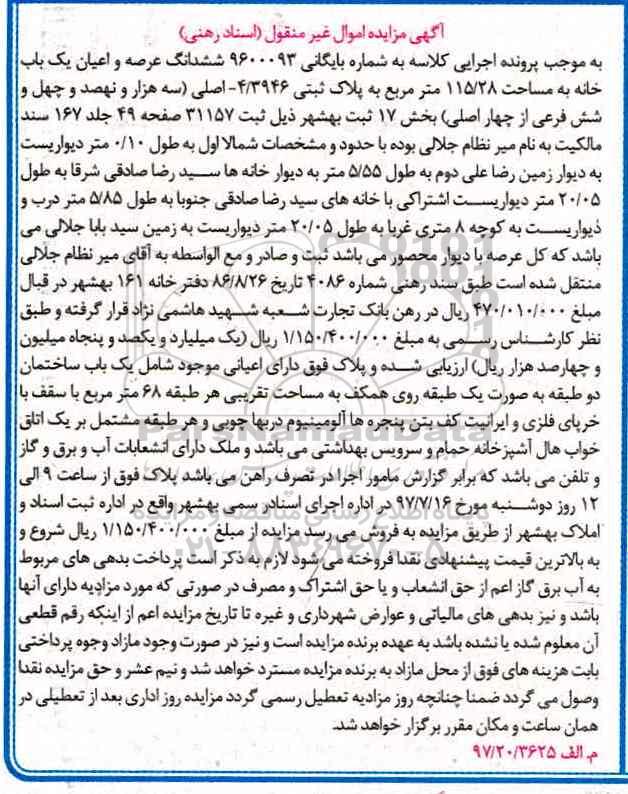 آگهی مزایده اموال غیر منقول (اسناد رهنی)
به موجب پرونده اجرایی کلاسه به شماره بایگانی ۹۶۰۰۰۹۳ ششدانگ عرصه و اعیان یک باب
خانه به مساحت ۱۱۵/۲۸ متر مربع به پلاک ثبتی ۴/۳۹۴۶- اصلی (سه هزار و نهصد و چهل و
شش فرعی از چهار اصلی) بخش ۱۷ ثبت بهشهر ذیل ثبت ۳۱۱۵۷ صفحه ۴۹ جلد ۱۶۷ سند
مالکیت به نام میر نظام جلالی بوده با حدود و مشخصات شمالا اول به طول ۰/۱۰ متر دیواریست
به دیوار زمین رضا علی دوم به طول ۵/۵۵ متر به دیوار خانه ها سید رضا صادقی شرقا به طول
۲۰/۰۵ متر دیواریست اشتراکی با خانه های سید رضا صادقی جنوبا به طول ۵/۸۵ متر درب و
دیواریست به کوچه ۸ متری غربا به طول ۲۰/۰۵ متر دیواریست به زمین سید بابا جلالی می
باشد که کل عرصه با دیوار محصور می باشد ثبت و صادر و مع الواسطه به آقای میر نظام جلالی
منتقل شده است طبق سند رهنی شماره ۴۰۸۶ تاریخ ۸۶/۸/۲۶ دفتر خانه ۱۶۱ بهشهر در قبال
مبلغ ۴۷۰/۰۱۰/۰۰۰ ریال در رهن بانک تجارت شعبه شهید هاشمی نژاد قرار گرفته و طبق
نظر کارشناس رسمی به مبلغ ۱/۱۵۰/۴۰۰/۰۰۰ ریال (یک میلیارد و یکصد و پنجاه میلیون
و چهارصد هزار ریال) ارزیابی شده و پلاک فوق دارای اعیانی موجود شامل یک باب ساختمان
دو طبقه به صورت یک طبقه روی همکف به مساحت تقریبی هر طبقه ۶۸ متر مربع با سقف با
خرپای فلزی و ایرانیت کف بتن پنجره ها آلومینیوم دربها چوبی و هر طبقه مشتمل بر یک اتاق
خواب هال آشپزخانه حمام و سرویس بهداشتی می باشد و ملک دارای انشعابات آب و برق و گاز
و تلفن می باشد که برابر گزارش مامور اجرا در تصرف راهن می باشد پلاک فوق از ساعت ۹ الی
۱۲ روز دوشنبه مورخ ۹۷/۷/۱۶ در اداره اجرای اسناد رسمی بهشهر واقع در اداره ثبت اسناد و
املاک بهشهر از طریق مزایده به فروش می رسد مزایده از مبلغ ۱/۱۵۰/۴۰۰/۰۰۰ ریال شروع و
به بالاترین قیمت پیشنهادی نقدا فروخته می شود لازم به ذکر است پرداخت بدهی های مربوط
به آب برق گاز اعم از حق انشعاب و یا حق اشتراک و مصرف در صورتی که مورد مزادیه دارای آنها
باشد و نیز بدهی های مالیاتی و عوارض شهرداری و غیره تا تاریخ مزایده اعم از اینکه رقم قطعی
آن معلوم شده یا نشده باشد به عهده برنده مزایده است و نیز در صورت وجود مازاد وجوه پرداختی
بابت هزینه های فوق از محل مازاد به برنده مزایده مسترد خواهد شد و نیم عشر و حق مزایده نقدا
وصول می گردد ضمنا چنانچه روز مزادیه تعطیل رسمی گردد مزایده روز اداری بعد از تعطیلی در
همان ساعت و مکان مقرر برگزار خواهد شد.
م. الف ۹۷/۲۰/۳۶۲۵
ParsNamadData
پایگاه اطلاع رسانی مناقصه و مزایده
۰۲۱-۸۸۳۴۹۶۷۰-۵